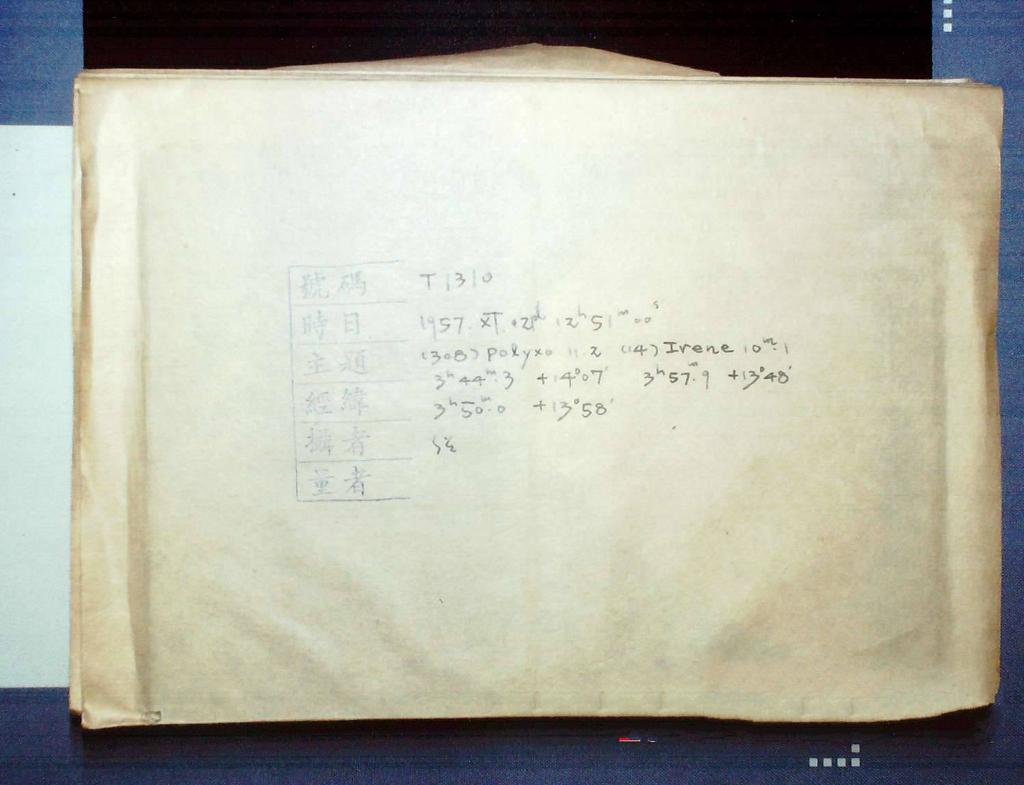 號碼 T1310
時日 1957. XI. 02 12ʰ51ᵐ00ˢ
主題 (308) Polyxo 11.2 (14) Irene 10ᵐ.1
3ʰ44ᵐ.3 +14°07' 3ʰ57ᵐ.9 +13°48'
經緯 3ʰ50ᵐ.0 +13°58'
攝者
量者